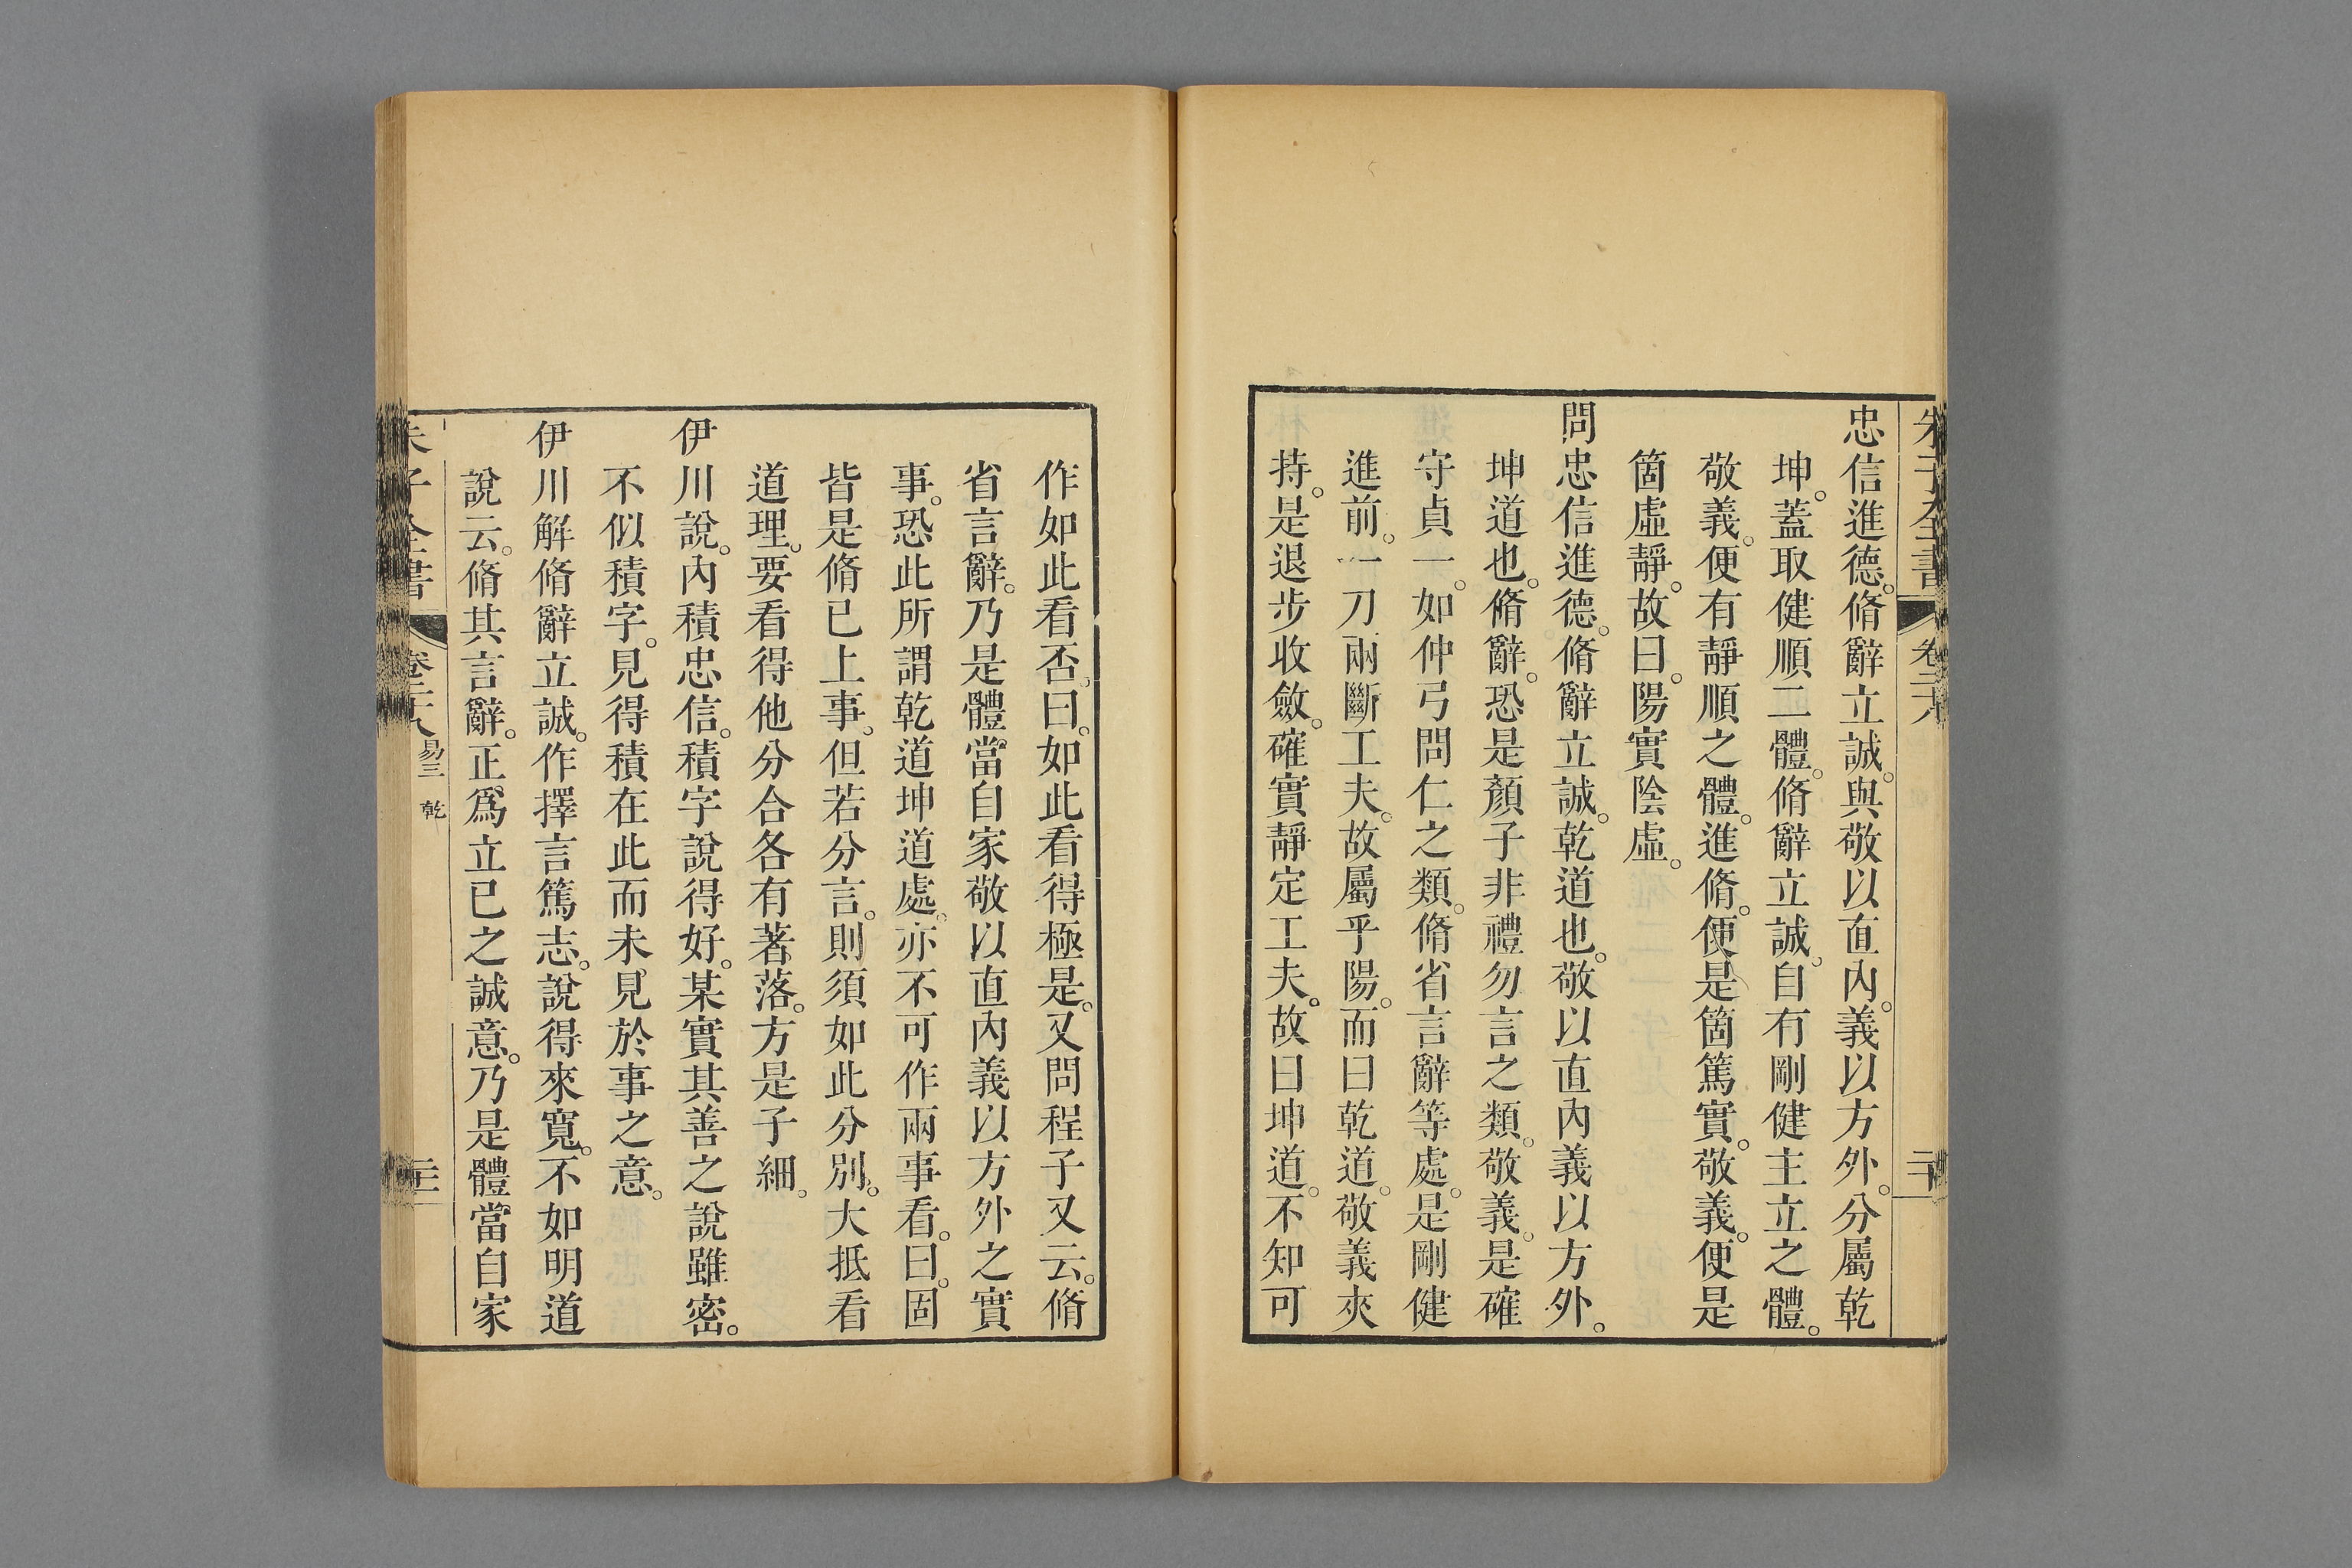 朱子全書 卷二十八 二十
忠信進德。脩辭立誠。與敬以直內。義以方外。分屬乾
坤。蓋取健順二體。脩辭立誠。自有剛健主立之體。
敬義。便有靜順之體。進脩。便是箇篤實。敬義。便是
箇虛靜。故曰。陽實陰虛。
問忠信進德。脩辭立誠。乾道也。敬以直內義以方外。
坤道也。脩辭。恐是顏子非禮勿言之類。敬義。是確
守貞一。如仲弓問仁之類。脩省言辭等處。是剛健
進前。一刀兩斷工夫。故屬乎陽。而曰乾道。敬義夾
持。是退步收斂。確實靜定工夫。故曰坤道。不知可
作如此看否。曰。如此看得極是。又問程子又云。脩
省言辭。乃是體當自家敬以直內義以方外之實
事。恐此所謂乾道坤道處。亦不可作兩事看。曰。固
皆是脩已上事。但若分言。則須如此分別。大抵看
道理。要看得他分合各有著落。方是子細。
伊川說。內積忠信。積字說得好。某實其善之說雖密。
不似積字。見得積在此而未見於事之意。
伊川解脩辭立誠。作擇言篤志。說得來寬。不如明道
說云。脩其言辭。正爲立已之誠意。乃是體當自家
朱子全書 卷二十八 易三 乾 二十一